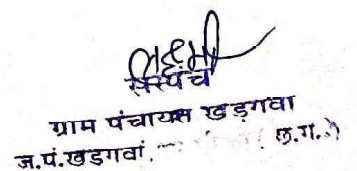 लक्ष्मी
सरपंच
ग्राम पंचायत खड़गवा
ज.पं.खडगवां. (छ.ग.)